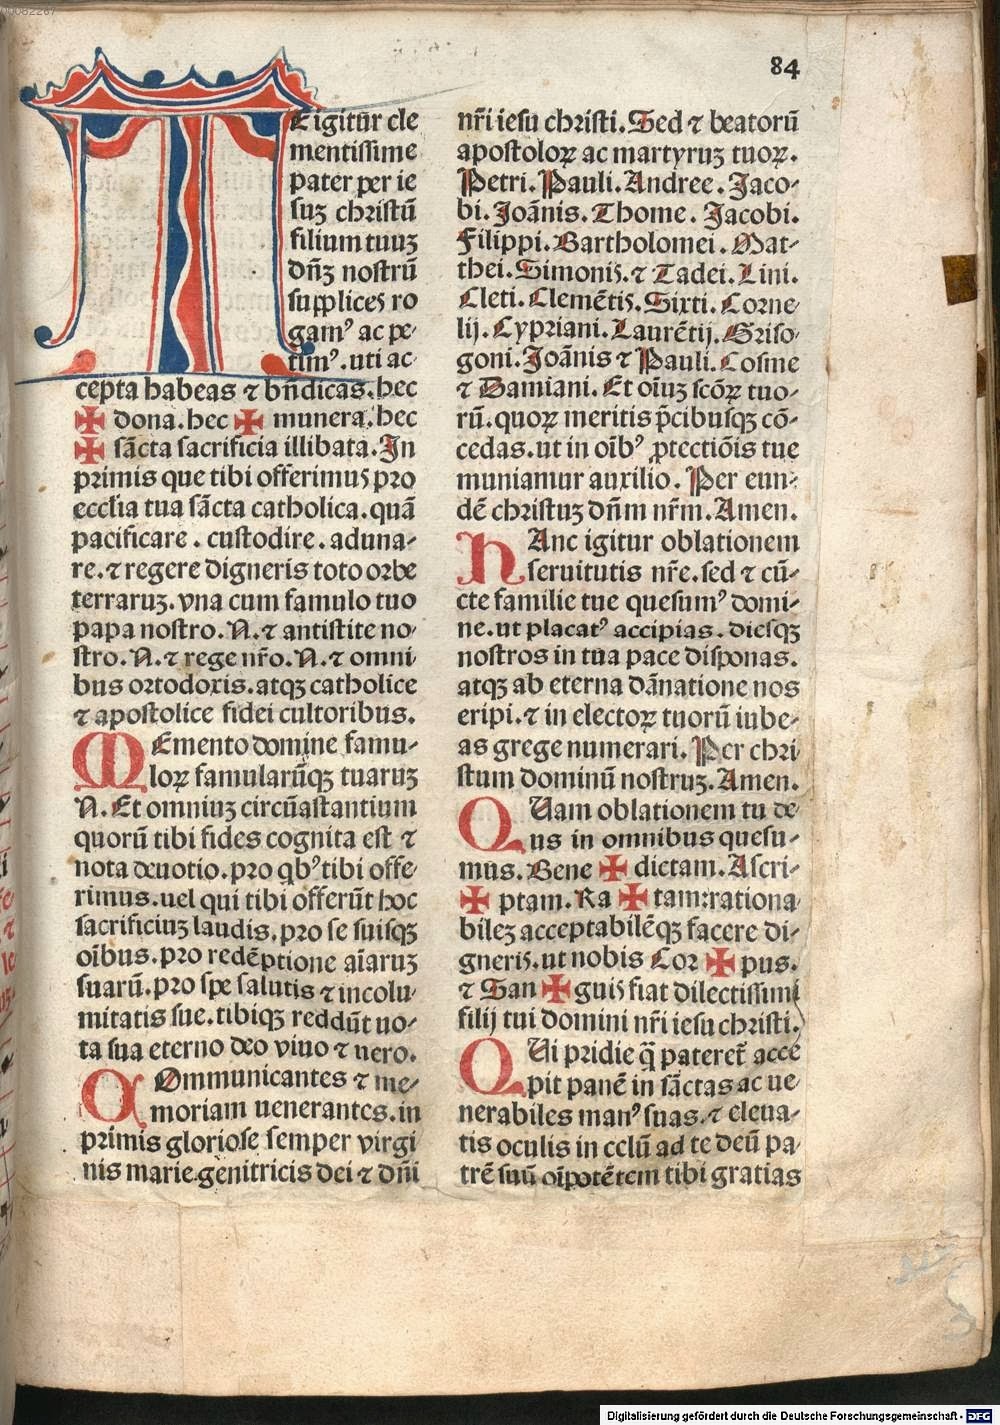 84
TEigitur cle
mentissime
pater per ie
suʒ christū
filium tuuʒ
dn̄ʒ nostrū
supplices ro
gam⁹ ac pe⸗
tim⁹. uti ac⸗
cepta habeas ⁊ bn̄dicas. hec
✠ dona. hec ✠ munera. hec
✠ sācta sacrificia illibata. In
primis que tibi offerimus pro
ecclia tua sācta catholica. quā
pacificare. custodire. aduna⸗
re. ⁊ regere digneris toto orbe
terraruʒ. vna cum famulo tuo
papa nostro. N. ⁊ antistite no⸗
stro. N. ⁊ rege nr̄o. N. ⁊ omni⸗
bus ortodoxis. atqʒ catholice
⁊ apostolice fidei cultoribus.
MEmento domine famu⸗
loꝝ famularūqʒ tuaruʒ
N. Et omniuʒ circūastantium
quorū tibi fides cognita est ⁊
nota deuotio. pro qb⁹ tibi offe⸗
rimus. uel qui tibi offerūt hoc
sacrificiuʒ laudis. pro se suisqʒ
oībus. pro redēptione aīaruʒ
suarū. pro spe salutis ⁊ incolu⸗
mitatis sue. tibiqʒ reddūt uo⸗
ta sua eterno deo viuo ⁊ uero.
COmmunicantes ⁊ me⸗
moriam uenerantes. in
primis gloriose semper virgi
nis marie genitricis dei ⁊ dn̄i
nr̄i iesu christi. Sed ⁊ beatorū
apostoloꝝ ac martyruʒ tuoꝝ.
Petri. Pauli. Andree. Jaco⸗
bi. Joānis. Thome. Jacobi.
Filippi. Bartholomei. Mat⸗
thei. Simonis. ⁊ Tadei. Lini.
Cleti. Clemētis. Sixti. Corne⸗
lij. Cypriani. Laurētij. Griso⸗
goni. Joānis ⁊ Pauli. Cosme
⁊ Damiani. Et oīuʒ scōꝝ tuo⸗
rū. quoꝝ meritis p̄cibusqʒ cō⸗
cedas. ut in oīb⁹ ꝓtectiōis tue
muniamur auxilio. Per eun⸗
dē christuʒ dn̄m nr̄m. Amen.
HAnc igitur oblationem
seruitutis nr̄e. sed ⁊ cū⸗
cte familie tue quesum⁹ domi⸗
ne. ut placat⁹ accipias. diesqʒ
nostros in tua pace disponas.
atqʒ ab eterna dānatione nos
eripi. ⁊ in electoꝝ tuorū iube⸗
as grege numerari. Per chri
stum dominū nostruʒ. Amen.
QUam oblationem tu de⸗
us in omnibus quesu⸗
mus. Bene ✠ dictam. Ascri⸗
✠ ptam. Ra ✠ tam: rationa
bileʒ acceptabilēqʒ facere di⸗
gneris. ut nobis Cor ✠ pus.
⁊ San ✠ guis fiat dilectissimi
filij tui domini nr̄i iesu christi.
QUi pridie q̄ pateret̄ acce
pit panē in sāctas ac ue⸗
nerabiles man⁹ suas. ⁊ eleua⸗
tis oculis in celū ad te deū pa⸗
trē suū oīpotētem tibi gratias
Digitalisierung gefördert durch die Deutsche Forschungsgemeinschaft - DFG